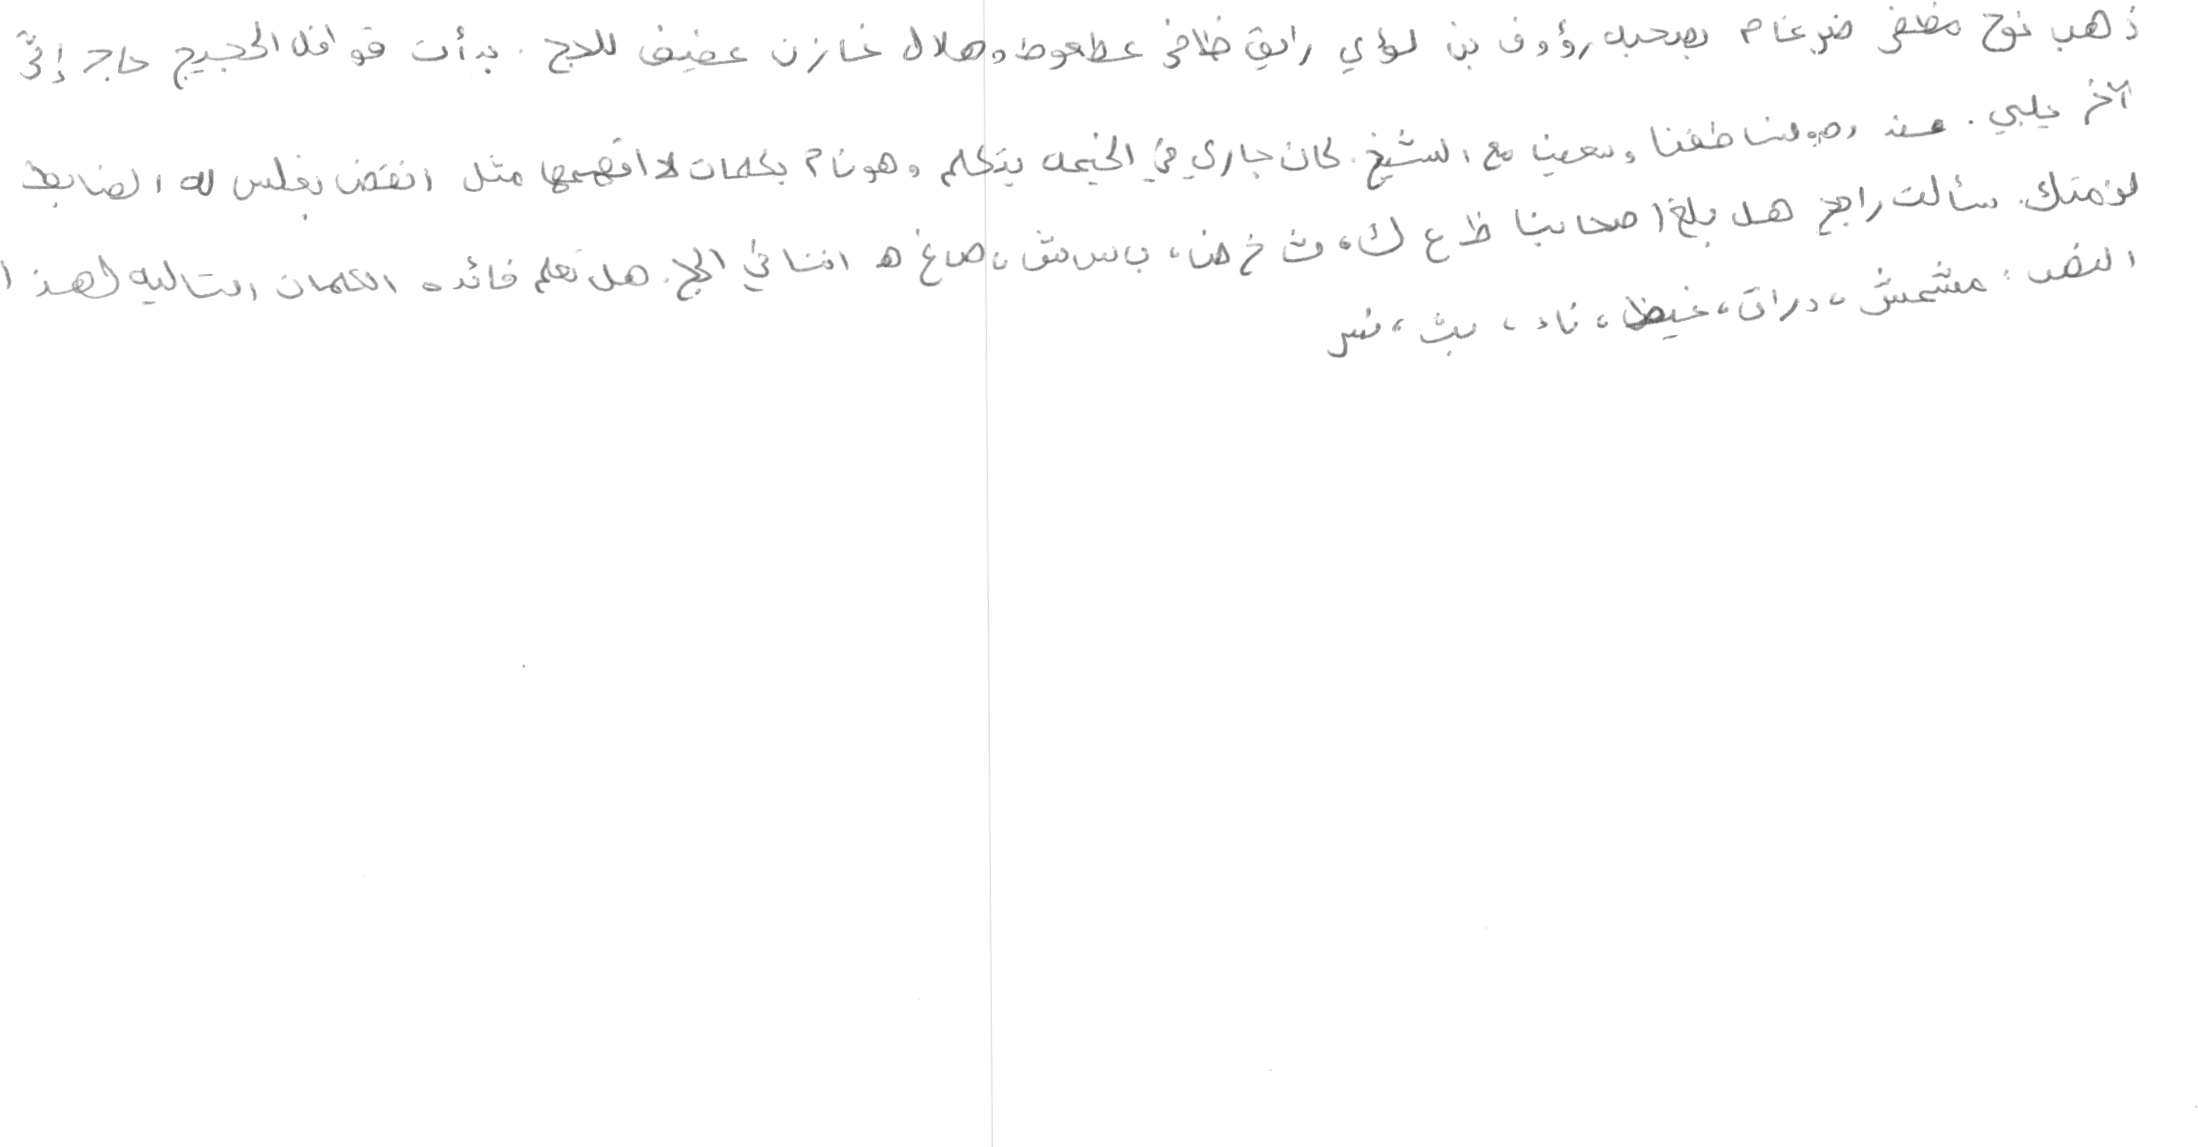 ذهب نوح مظفر ضرغام بصحبه رؤوف بن لؤي رايق ظافر عطعوط وهلال خازن عفيف للحج. بدأت قوافل الحجيج حاج إثر
آخر يلبي. عند وصولنا طفنا وسعينا مع الشيخ. كان جاري في الخيمه يتكلم وهو نام بكلمات لا افهمها مثل انقض بغلس له الضابط
لزمتك. سألت راجح هل بلغ اصحابنا ظ ع ك، ث خ ض، ب س ش، ص غ ه اننا في الحج. هل تعلم فائده الكلمات التاليه لهذا
النص: مشمش، درات، غيظ، ناء، بث، نسر